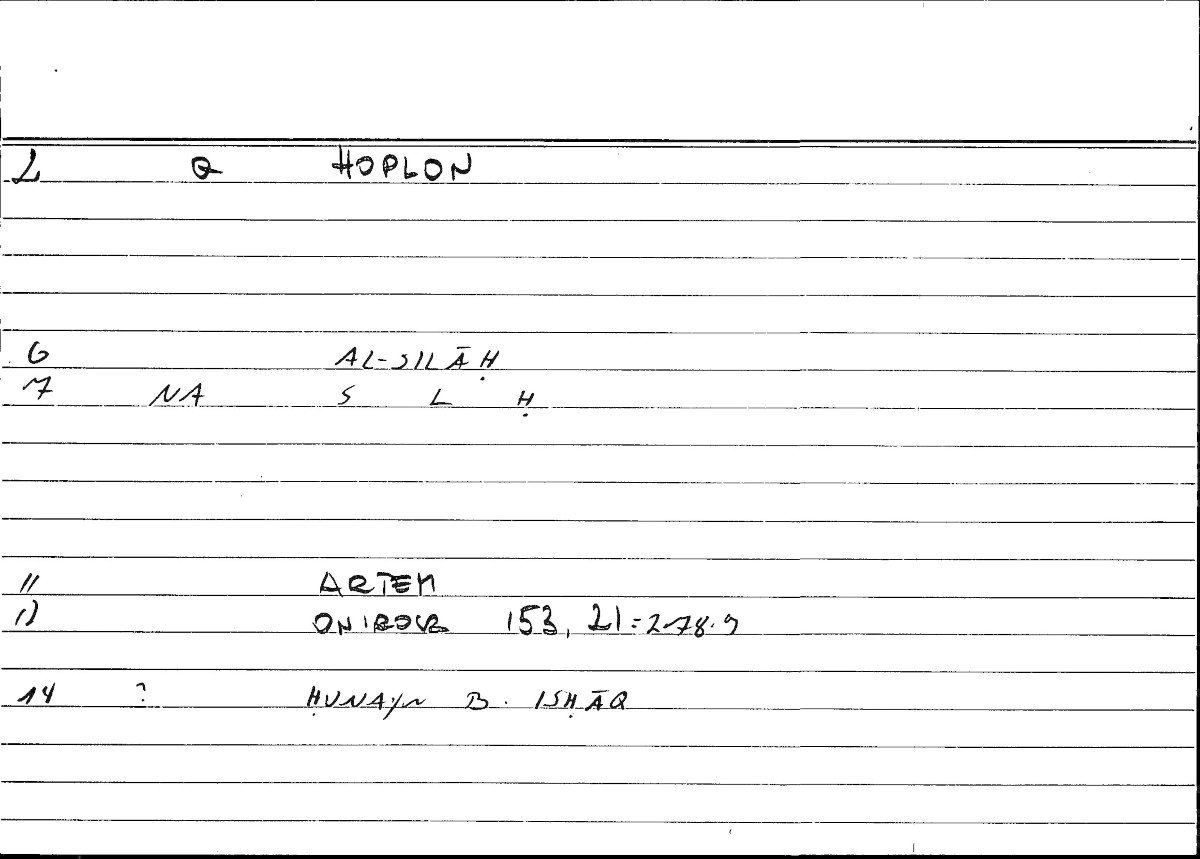 2 Q HOPLON
6 AL-SILĀḤ
7 NA S L Ḥ
11 ARTEM
12 ONIROCR 153, 21 = 278.9
14 ? ḤUNAYN B. ISḤĀQ